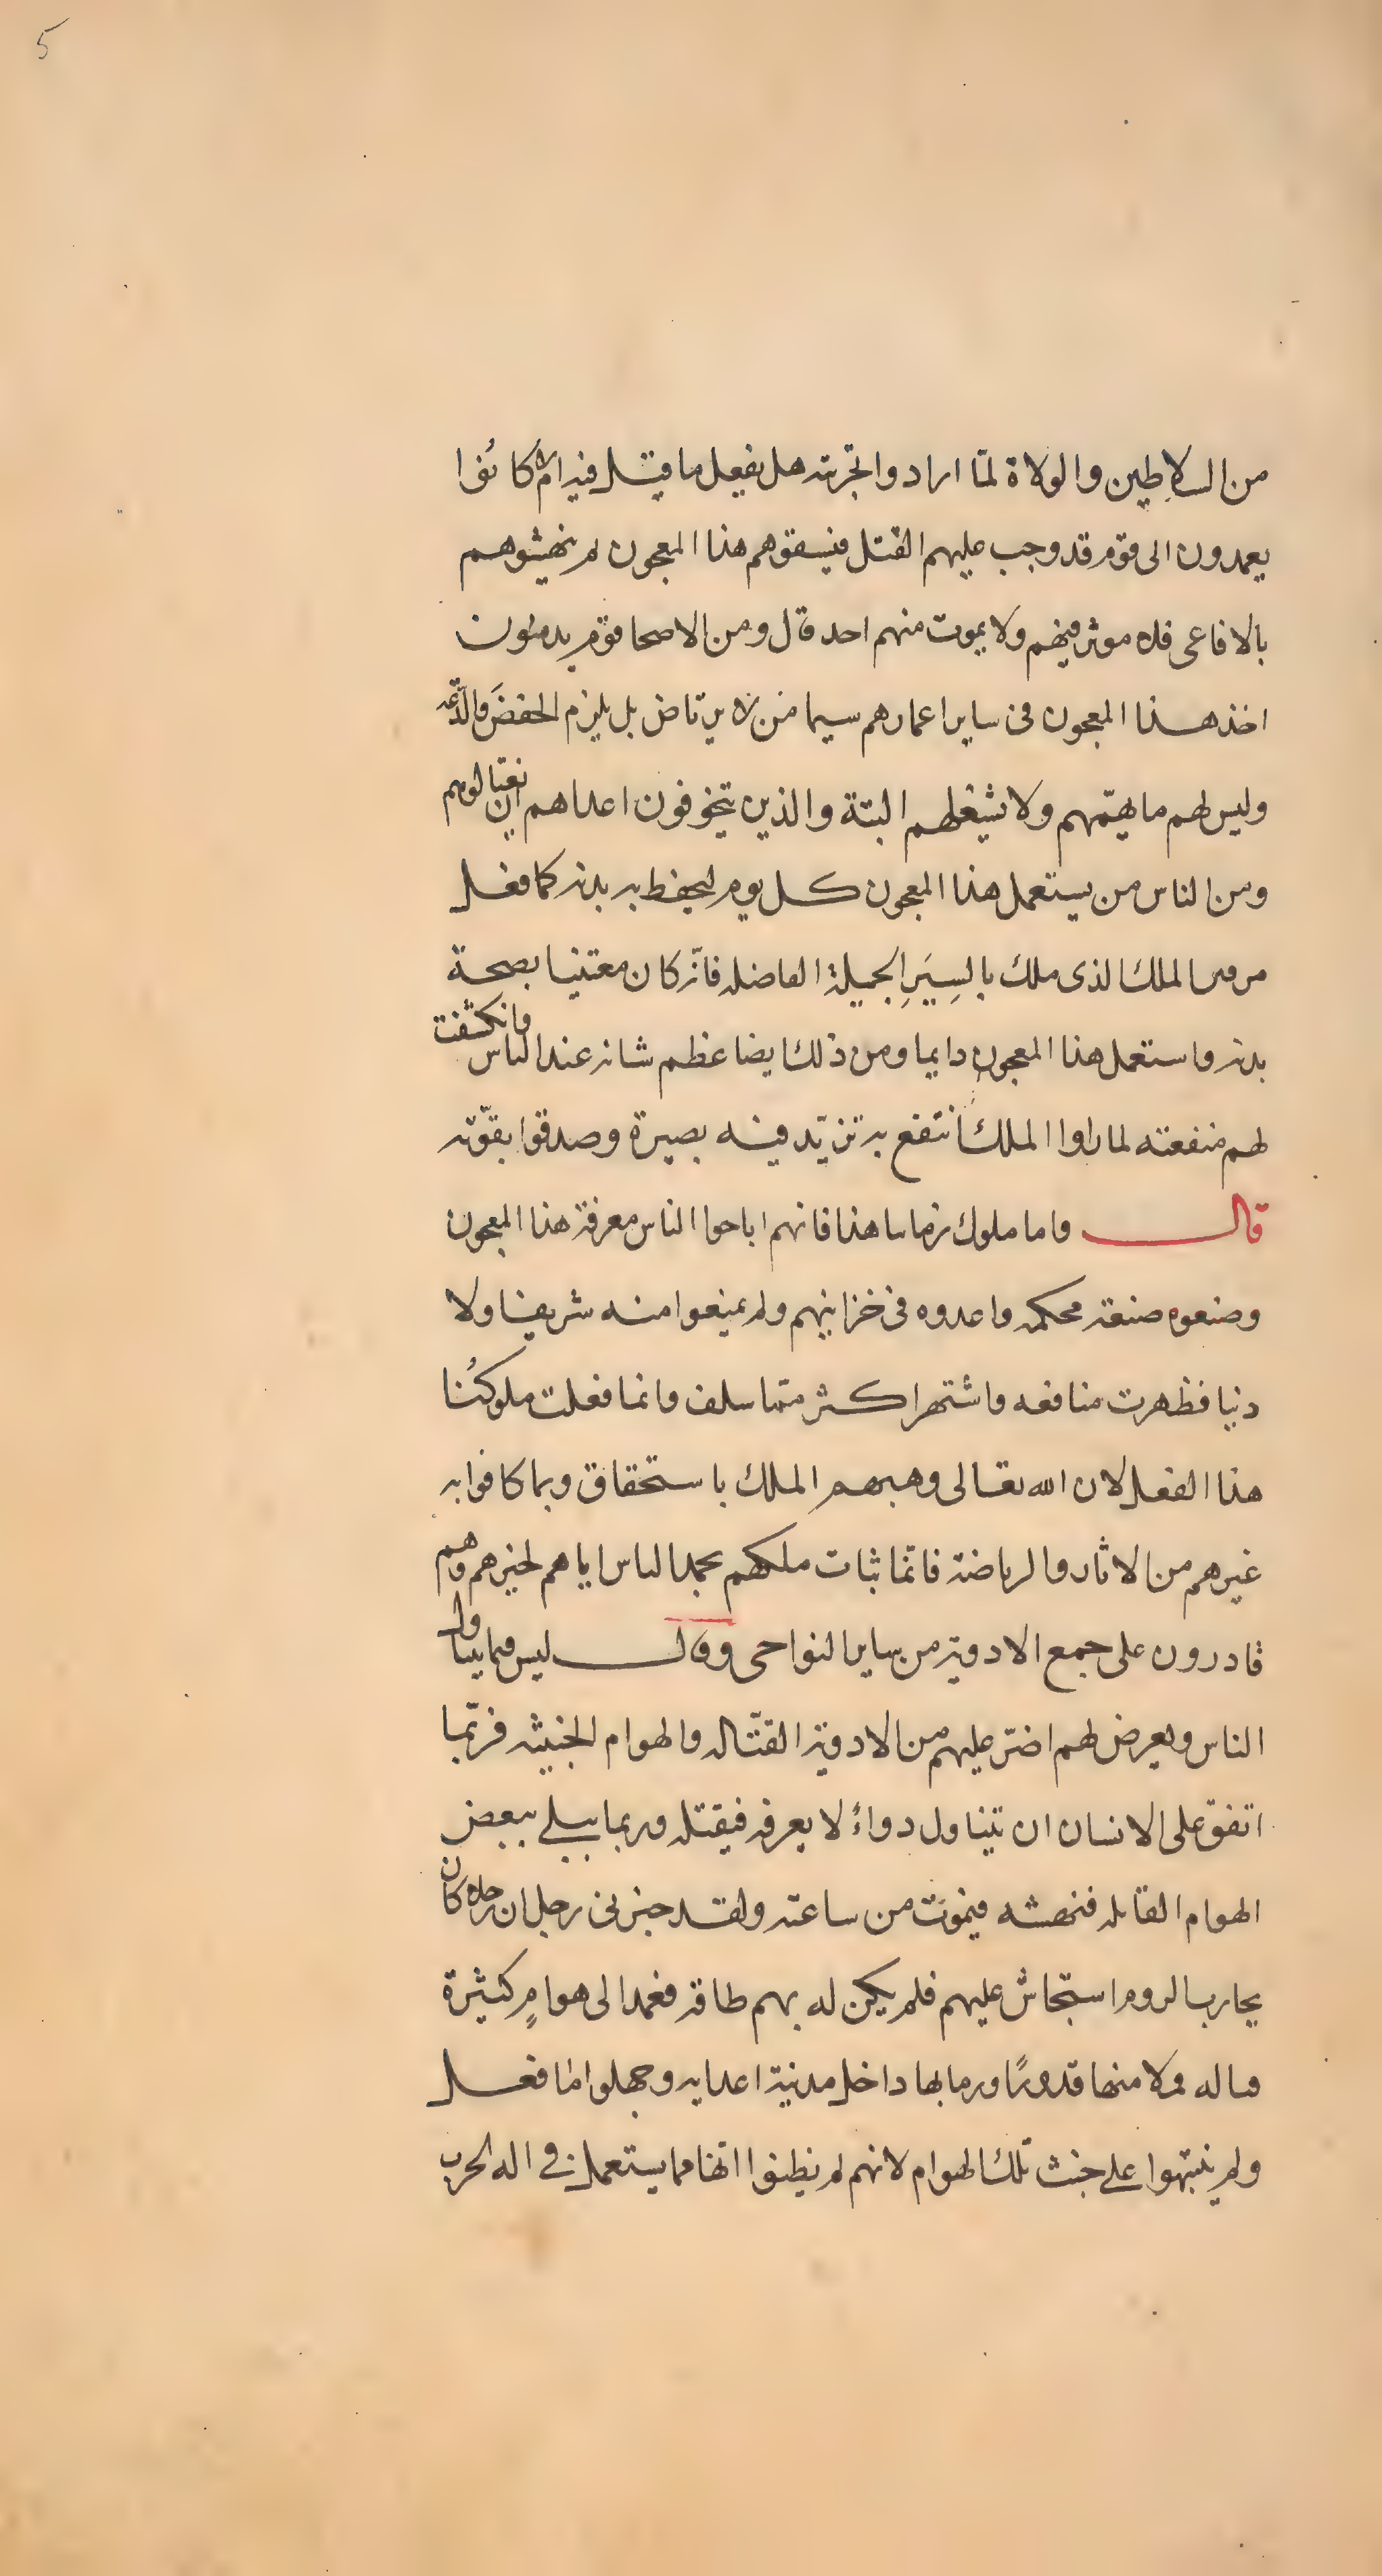 5
من السلاطين والولاة لمّا ارادوا تجربته هل يفعل ما قيل فيه ام لا كانُوا
يعمدون الى قوم قد وجب عليهم القتل فيسقوهم هذا المعجون ثم ينهشوهم
بالافاعى فلا يوثر فيهم ولا يموت منهم احد قال ومن الاصحا قوم يدمنون
اخذ هذا المعجون فى ساير اعمارهم سيما من لا يرتاض بل يلزم الخفضَ والدّعة
وليس لهم ما يهمّهم ولا يشغلهم البتة والذين يتخوفون اعداهم ان يغتالوهم
ومن الناس من يستعمل هذا المعجون كل يوم ليحفظ به بدنه كما فعل
مرقس الملك الذى ملك بالسِيَرِ الجميلة الفاضله فانّه كان معتنيا بصحة
بدنه واستعمل هذا المعجون دايما ومن ذلك ايضا عظم شانه عند الناس وانكشفت
لهم منفعته لما راوا الملك انتفع به تزيّد فيه بصيرة وصدقوا بقوّته
قال واما ملوك زماننا هذا فانهم اباحوا الناس معرفة هذا المعجون
وصنعوه صنعة محكمه واعدوه فى خزاينهم ولم يمنعوا منه شريفا ولا
دنيا فظهرت منافعه واشتهر اكثر ممّا سلف وانما فعلت ملوكُنا
هذا الفعل لان الله تعالى وهبهم الملك باستحقاق وبما كافوا به
غيرهم من الاثار والرياضة فانّما ثبات ملكهم بحمد الناس اياهم لخيرهم وهم
قادرون على جمع الادوية من ساير النواحى وقال ليس فيما يتناول
الناس ويعرض لهم اضرّ عليهم من الادوية القتّاله والهوام الخبيثه فربّما
اتفق على الانسان ان يتناول دواءً لا يعرفه فيقتله وربما يبلى ببعض
الهوام القاتله فنهشه فيموت من ساعته ولقد خبرنى رجل ان رجلا كان
يحارب الروم استجاش عليهم فلم يكن له بهم طاقة فعمد الى هوامٍ كثيرة
قتاله فملا منها قدورًا ورما بها داخل مدينة اعدايه وجهلوا ما فعل
ولم ينتبهوا على خبث تلك الهوام لانهم لم يظنوا انها مما يستعمل فى اله الحرب